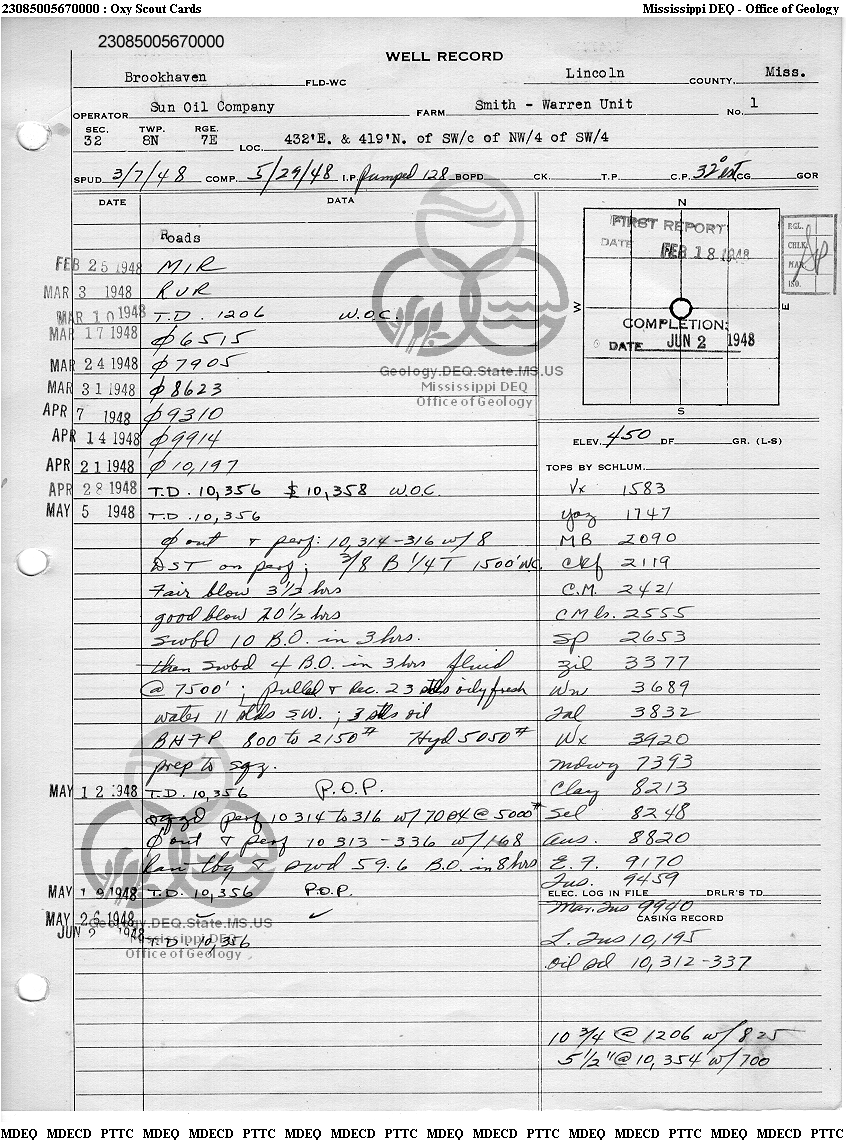 23085005670000 : Oxy Scout Cards Mississippi DEQ - Office of Geology
23085005670000
WELL RECORD
Brookhaven FLD-WC Lincoln COUNTY, Miss.
OPERATOR Sun Oil Company FARM Smith - Warren Unit No. 1
SEC. TWP. RGE.
32 8N 7E LOC. 432'E. & 419'N. of SW/c of NW/4 of SW/4
SPUD 3/7/48 COMP. 5/29/48 I.P. Pumped 128 BOPD CK. T.P. C.P. 32° est CG GOR
DATE DATA
Roads
FEB 25 1948 MIR
MAR 3 1948 RUR
MAR 10 1948 T.D. 1206 W.O.C.
MAR 17 1948 ∅ 6515
MAR 24 1948 ∅ 7905
MAR 31 1948 ∅ 8623
APR 7 1948 ∅ 9310
APR 14 1948 ∅ 9914
APR 21 1948 ∅ 10,197
APR 28 1948 T.D. 10,356 $ 10,358 W.O.C.
MAY 5 1948 T.D. 10,356
∅ out & perf: 10,314-316 w/8
DST on perf; 3/8 B 1/4 T 1500' W.C.
Fair blow 3 1/2 hrs
good blow 20 1/2 hrs
Swbd 10 B.O. in 3 hrs.
then Swbd 4 B.O. in 3 hrs fluid
@ 7500'; pulled & Rec. 23 stds oily fresh
water 11 stds S.W.; 3 stds oil
BHFP 800 to 2150# Hyd 5050#
prep to sqz.
MAY 12 1948 T.D. 10,356 P.O.P.
sqzd perf 10314 to 316 w/70 @ 5000#
∅ out & perf 10313-336 w/168
Ran tbg & swd 59.6 B.O. in 8 hrs
MAY 19 1948 T.D. 10,356 P.O.P.
MAY 26 1948 ✓ ✓
JUN 2 1948 T.D. 10,356
N
W
E
S
FIRST REPORT
DATE FEB 18 1948
COMPLETION:
DATE JUN 2 1948
RGL.
CHLK.
MAP
INO.
ELEV. 450 DF GR. (L-S)
TOPS BY SCHLUM.
Vx 1583
Yaz 1747
MB 2090
Ckf 2119
C.M. 2421
CM ls. 2555
Sp 2653
Zil 3377
Wn 3689
Tal 3832
Wx 3920
Mdwy 7393
Clay 8213
Sel 8248
Aus. 8820
E.F. 9170
Tus. 9459
ELEC. LOG IN FILE DRLR'S TD
Mar. Tus 9940
CASING RECORD
L. Tus 10,195
oil sd 10,312-337
10 3/4 @ 1206 w/825
5 1/2" @ 10,354 w/700
Geology.DEQ.State.MS.US
Mississippi DEQ
Office of Geology
Geology.DEQ.State.MS.US
Mississippi DEQ
Office of Geology
MDEQ MDECD PTTC MDEQ MDECD PTTC MDEQ MDECD PTTC MDEQ MDECD PTTC MDEQ MDECD PTTC MDEQ MDECD PTTC